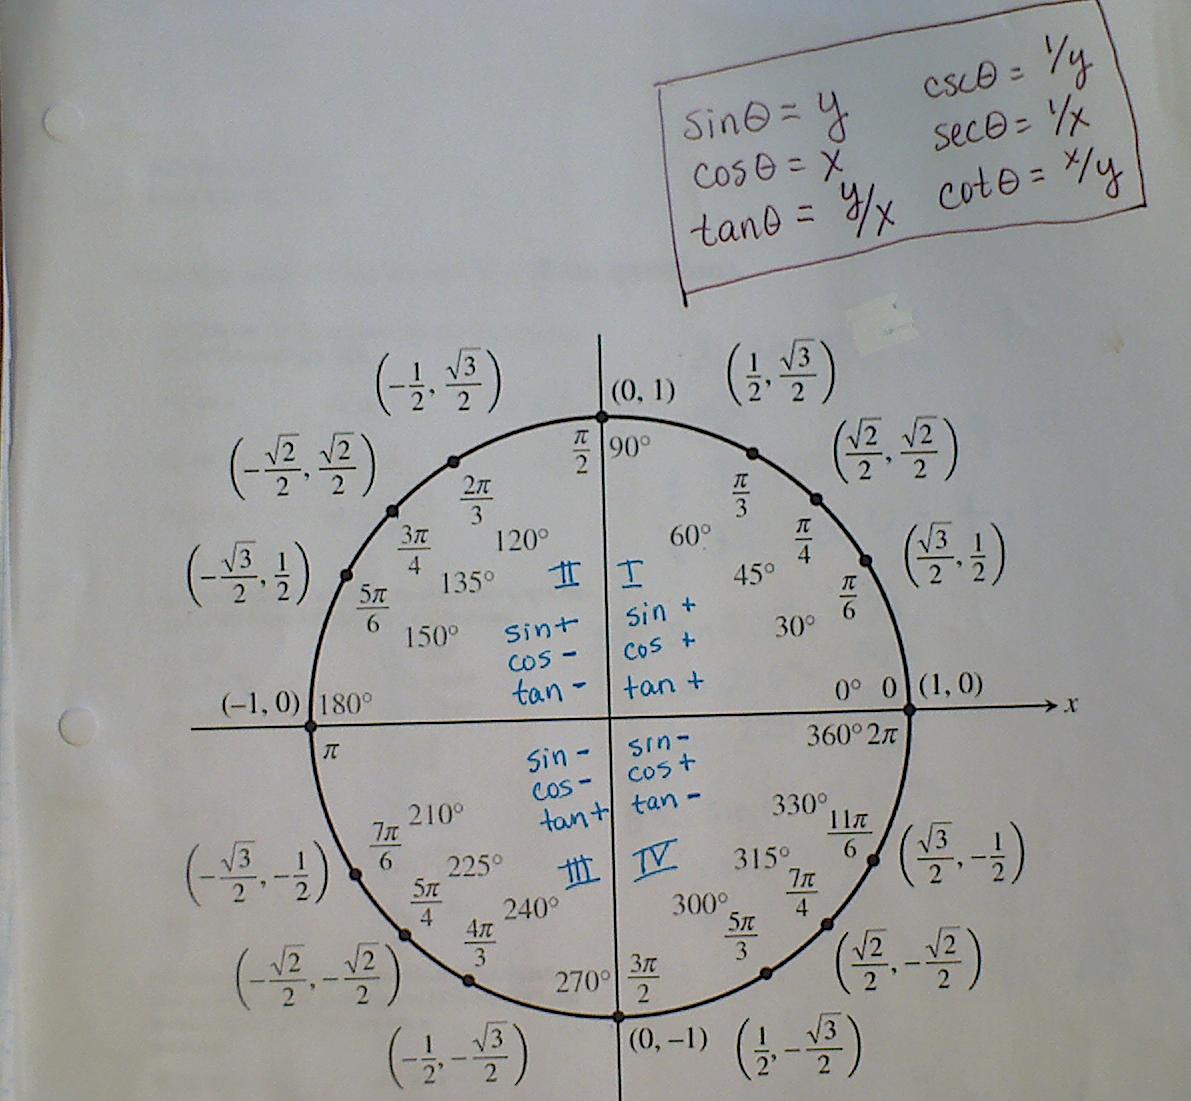 sinθ = y cscθ = 1/y
cosθ = x secθ = 1/x
tanθ = y/x cotθ = x/y
(-1/2, √3/2) (0, 1) (1/2, √3/2)
(-√2/2, √2/2) π/2 90° (√2/2, √2/2)
2π/3 π/3
3π/4 120° 60° π/4
(-√3/2, 1/2) 135° II I 45° (√3/2, 1/2)
5π/6 150° 30° π/6
sin+ sin +
cos- cos +
tan- tan +
(-1, 0) 180° 0° 0 (1, 0) x
π 360° 2π
sin- sin-
cos- cos+
tan+ tan-
7π/6 210° 330° 11π/6
(-√3/2, -1/2) 225° III IV 315° (√3/2, -1/2)
5π/4 240° 300° 7π/4
4π/3 5π/3
(-√2/2, -√2/2) 270° 3π/2 (√2/2, -√2/2)
(-1/2, -√3/2) (0, -1) (1/2, -√3/2)